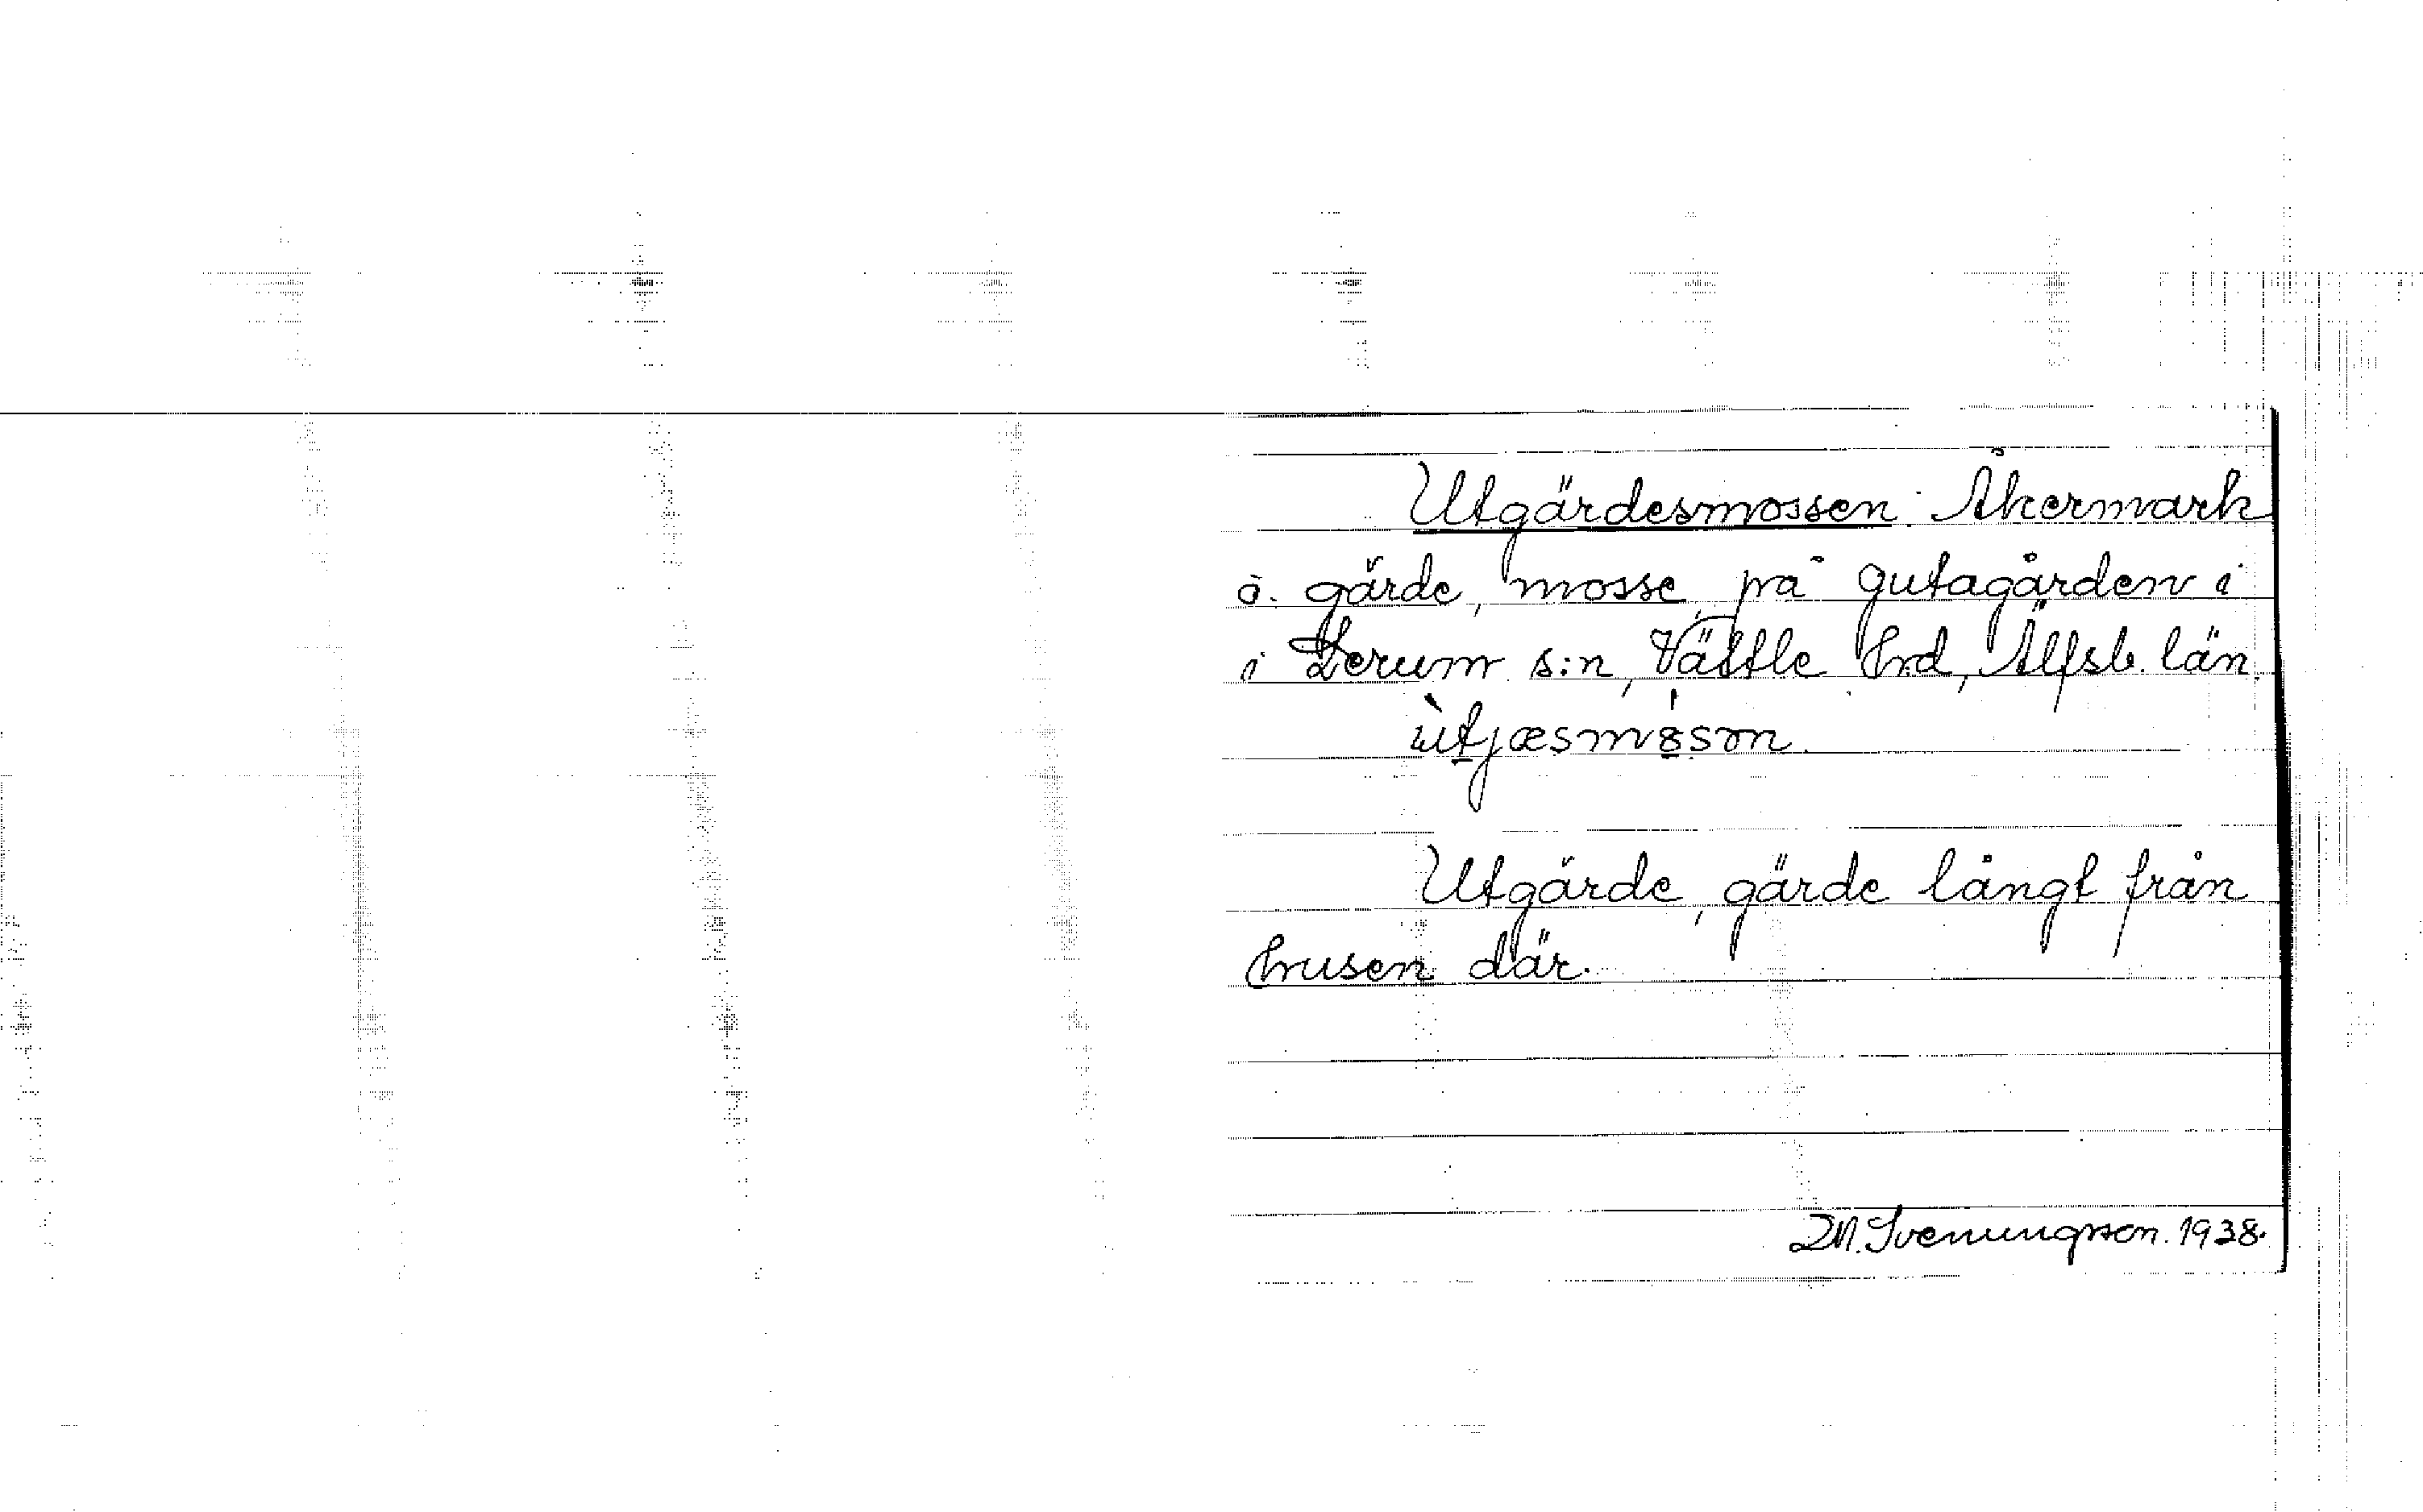 Utgärdesmossen. Åkermark
å. gärde, mosse, på Gutagården i
i Lerum s:n, Vättle hrd, Älfsb. län.
ùtjæsmɞ̀sən.
Utgärde, gärde långt från
husen där.
M. Svenungsson. 1938.